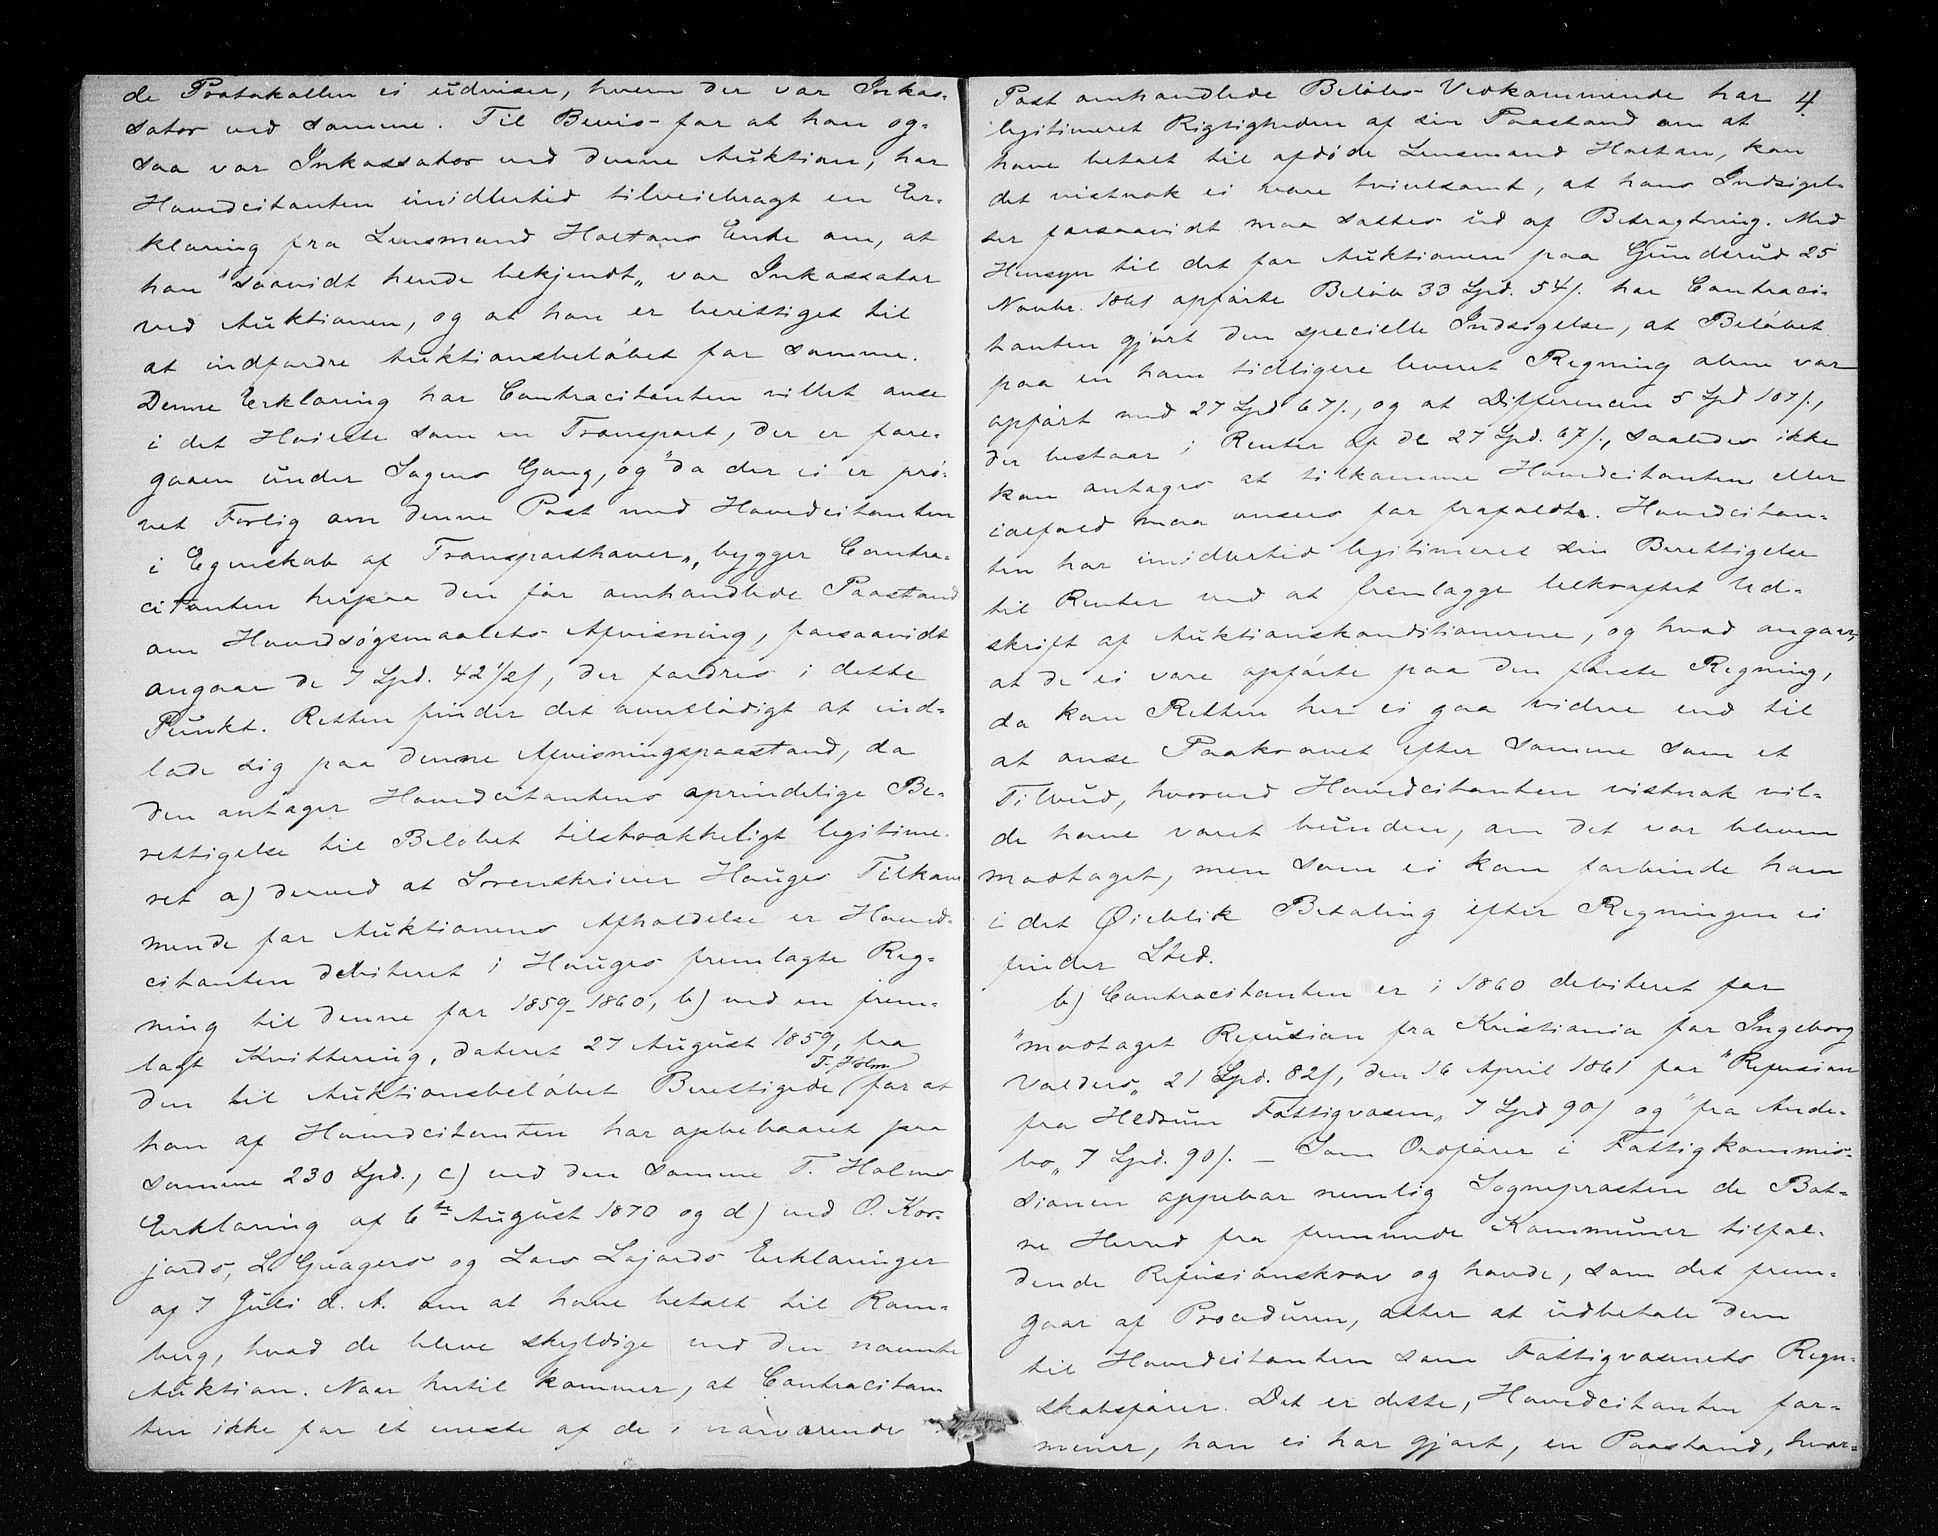 de Protokollen ei udviser, hvem der var Inkas-
sator ved samme. Til Bevis for at han og-
saa var Inkassator ved denne Auktion, har
Hovedcitanten imidlertid tilveiebragt en Er-
klæring fra Lensmand Holtans Enke om, at
han "saavidt hende bekjendt„ var Inkassator
ved Auktionen, og at han er berettiget til
at indfordre Auktionsbeløbet for samme.
Denne Erklæring har Contracitanten villet anse
i det Høieste som en Transport, der er fore-
gaaen under Sagens Gang, og "da der ei er prø-
vet Forlig om denne Post med Hovedcitanten
i Egenskab af Transporthaver„, bygger Contra-
citanten herpaa den før omhandlede Paastand
om Hovedsøgsmaalets Afvisning, forsaavidt
angaar de 7 Spd. 42 1/2 s, der fordres i dette
Punkt. Retten finder det ufornødigt at ind-
lade sig paa denne Afvisningspaastand, da
den antager Hovedcitantens oprindelige Be-
rettigelse til Beløbet tilstrækkeligt legitime-
ret a) derved at Sorenskriver Hauges Tilkom-
mende for Auktionens Afholdelse er Hoved-
citanten debiteret i Hauges fremlagte Reg-
ning til denne for 1859-1860, b) ved en frem-
lagt Kvittering, dateret 27 August 1859, fra
den til Auktionsbeløbet Berettigede (T. Holm) for at
han af Hovedcitanten har oppebaaret paa
samme 230 Spd., c) ved den samme T. Holms
Erklæring af 6te August 1870 og d) ved O. Kor-
jords, L. Gvagers og Lars Lajords Erklæringer
af 7 Juli d. A. om at have betalt til Ram-
berg, hvad de bleve skyldige ved den nævnte
Auktion. Naar hertil kommer, at Contracitan-
ten ikke for et eneste af de i nærværende
4.
Post omhandlede Beløbs Vedkommende har
legitimeret Rigtigheden af sin Paastand om at
have betalt til afdøde Lensmand Holtan, kan
det vistnok ei være tvivlsomt, at hans Indsigel-
ser forsaavidt maa sættes ud af Betragtning. Med
Hensyn til det for Auktionen paa Gunderud 25
Novbr. 1861 opførte Beløb 33 Spd. 54 s. har Contraci-
tanten gjort den specielle Indsigelse, at Beløbet
paa en ham tidligere leveret Regning alene var
opført med 27 Spd 67 s., og at Differencen 5 Spd 107 s.,
der bestaar i Renter af de 27 Spd. 67 s., saaledes ikke
kan antages at tilkomme Hovedcitanten eller
ialfald maa ansees for frafaldt. Hovedcitan-
ten har imidlertid legitimeret sin Berettigelse
til Renter ved at fremlægge bekræftet Ud-
skrift af Auktionskonditionerne, og hvad angaar,
at de ei vare opførte paa den første Regning,
da kan Retten her ei gaa videre end til
at anse Paakravet efter samme som et
Tilbud, hvorved Hovedcitanten vistnok vil-
de have været bunden, om det var bleven
modtaget, men som ei kan forbinde ham
i det Øieblik Betaling efter Regningen ei
finder Sted.
b) Contracitanten er i 1860 debiteret for
"modtaget Refusion fra Kristiania for Ingeborg
Valders„ 21 Spd. 82 s, den 16 April 1861 for "Refusion
fra Hedrum Fattigvæsen„ 7 Spd 90 s og "fra Ande-
bo„ 7 Spd. 90 s. — Som Ordfører i Fattigkommis-
sionen oppebar nemlig Sognepræsten de Bot-
ne Herred fra fremmede Kommuner tilfal-
dende Refusionskrav og havde, som det frem-
gaar af Proceduren, atter at udbetale dem
til Hovedcitanten som Fattigvæsenets Regn-
skabsfører. Det er dette, Hovedcitanten for-
mener, han ei har gjort, en Paastand, hvor-